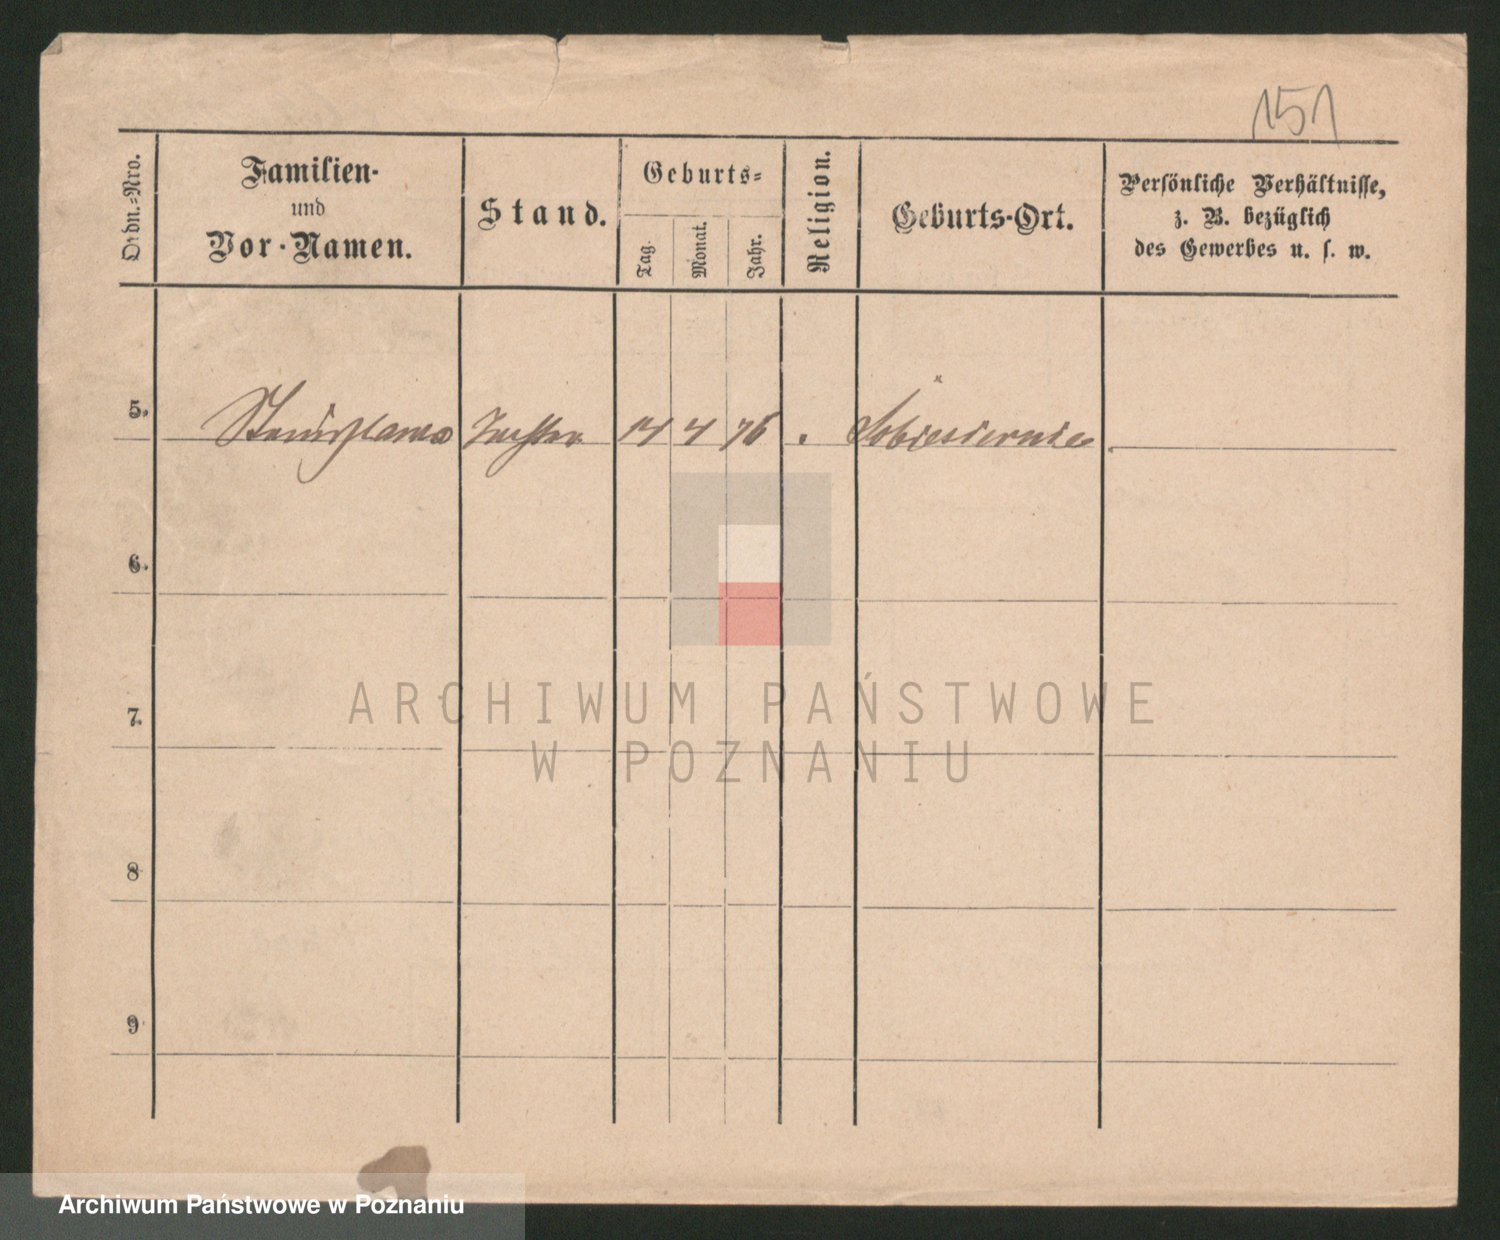 151
Ordn.-Nro.
Familien-
und
Vor-Namen.
Stand.
Geburts-
Tag.
Monat.
Jahr.
Religion.
Geburts-Ort.
Persönliche Verhältnisse,
z. B. bezüglich
des Gewerbes u. s. w.
5. Stanislawa Tochter 14 4 76 Sobiesiernie
6.
7.
8
9
ARCHIWUM PAŃSTWOWE
W POZNANIU
Archiwum Państwowe w Poznaniu